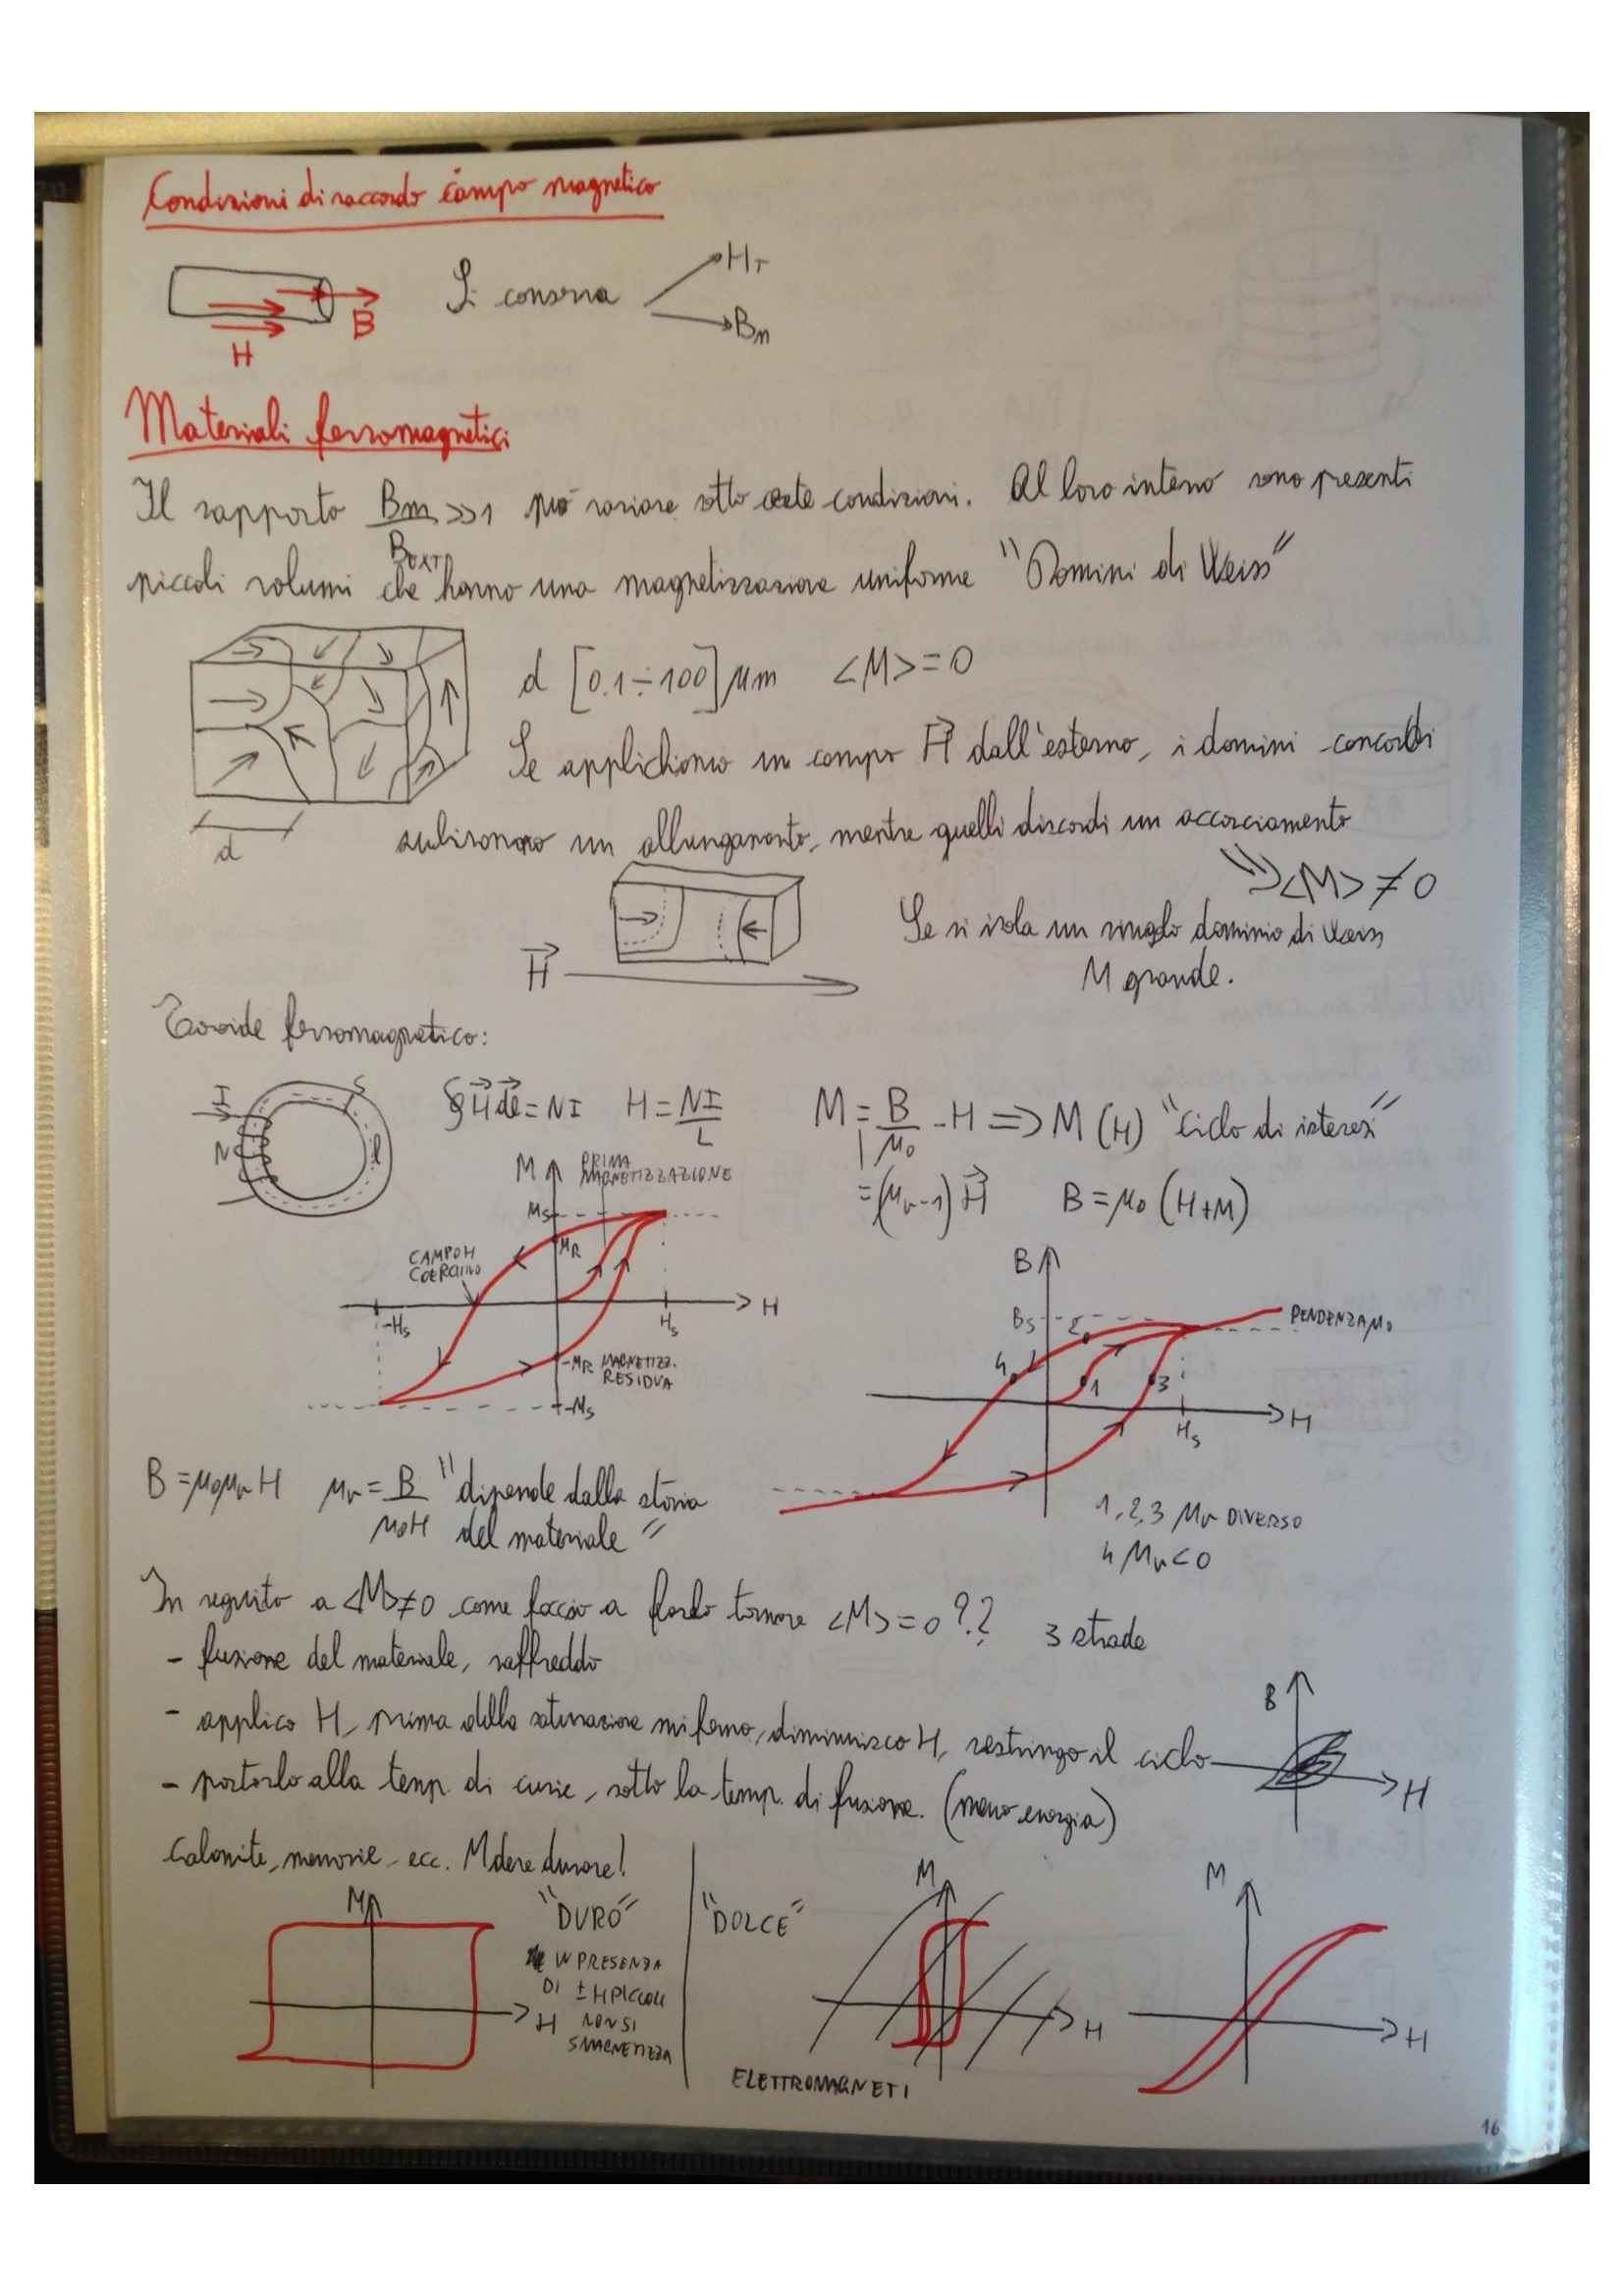 Condizioni di raccordo campo magnetico
Si conserva
H_T
B_n
B
H
Materiali ferromagnetici
Il rapporto B_m/B_ext >>1 può variare sotto certe condizioni. Al loro interno sono presenti
piccoli volumi che hanno una magnetizzazione uniforme "Domini di Weiss"
d [0.1÷100] μm <M>=0
Se applichiamo un campo H dall'esterno, i domini concordi
d
subiranno un allungamento, mentre quelli discordi un accorciamento
=> <M> ≠ 0
Se si isola un singolo dominio di Weiss
M grande.
H
Toroide ferromagnetico:
I
N
S
l
∮H dl = NI H = NI/L M = B/μ0 - H => M(H) "ciclo di isteresi"
= (μr-1) H B = μ0 (H+M)
M PRIMA
MAGNETIZZAZIONE
Ms
MR
CAMPO H
COERCITIVO
-Hs
Hs
H
-MR MAGNETIZZ.
RESIDUA
-Ms
B
Bs
PENDENZA μ0
2
4
1
3
Hs
H
B = μ0μr H μr = B/μ0H "dipende dalla storia
del materiale"
1,2,3 μr DIVERSO
4 μr<0
In seguito a <M>≠0 come faccio a farlo tornare <M>=0?? 3 strade
- fusione del materiale, raffreddo
- applico H, prima della saturazione mi fermo, diminuisco H, restringo il ciclo
B
H
- portarlo alla temp. di curie, sotto la temp. di fusione. (meno energia)
Calamite, memorie, ecc. M deve durare!
M
"DURO"
IN PRESENZA
DI ± H PICCOLI
NON SI
SMAGNETIZZA
H
"DOLCE"
M
H
M
H
ELETTROMAGNETI
16